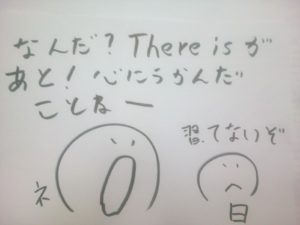 なんだ?There isが
あと!心にうかんだ
ことねー
習てないぞ
ネ
日